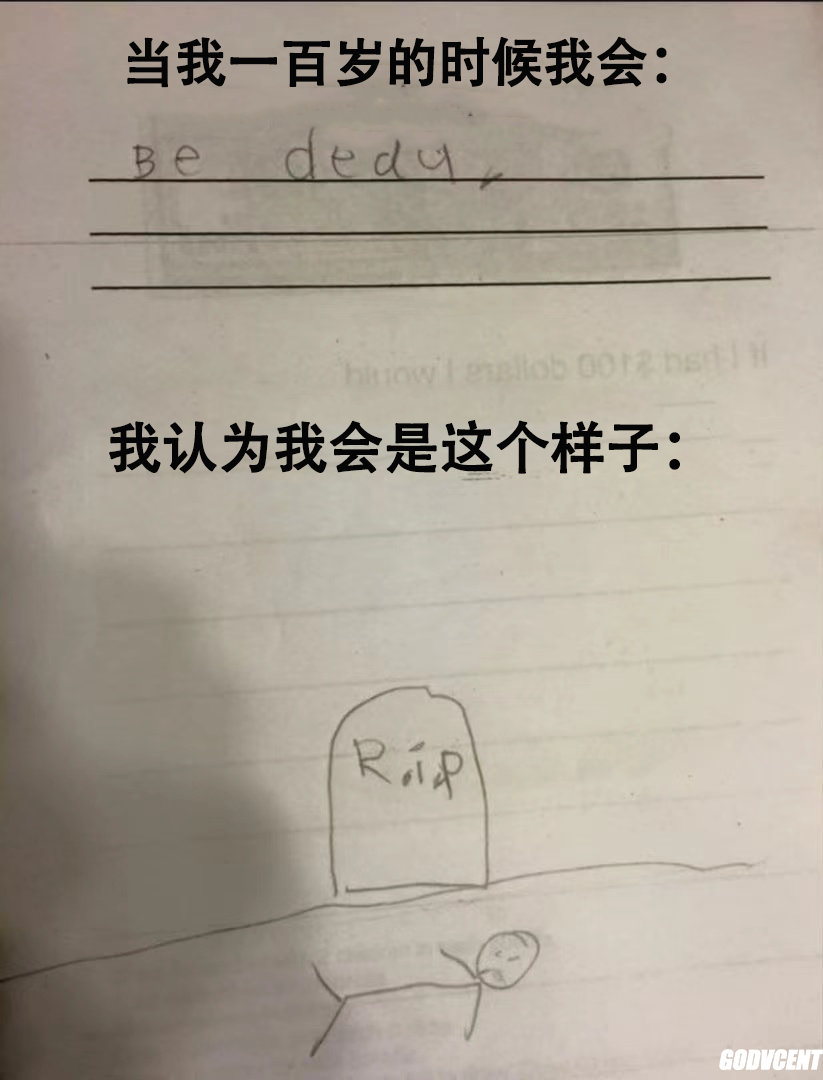 当我一百岁的时候我会：
Be dedy,
If I had $100 dollars I would
我认为我会是这个样子：
R.i.P
GODVCENT